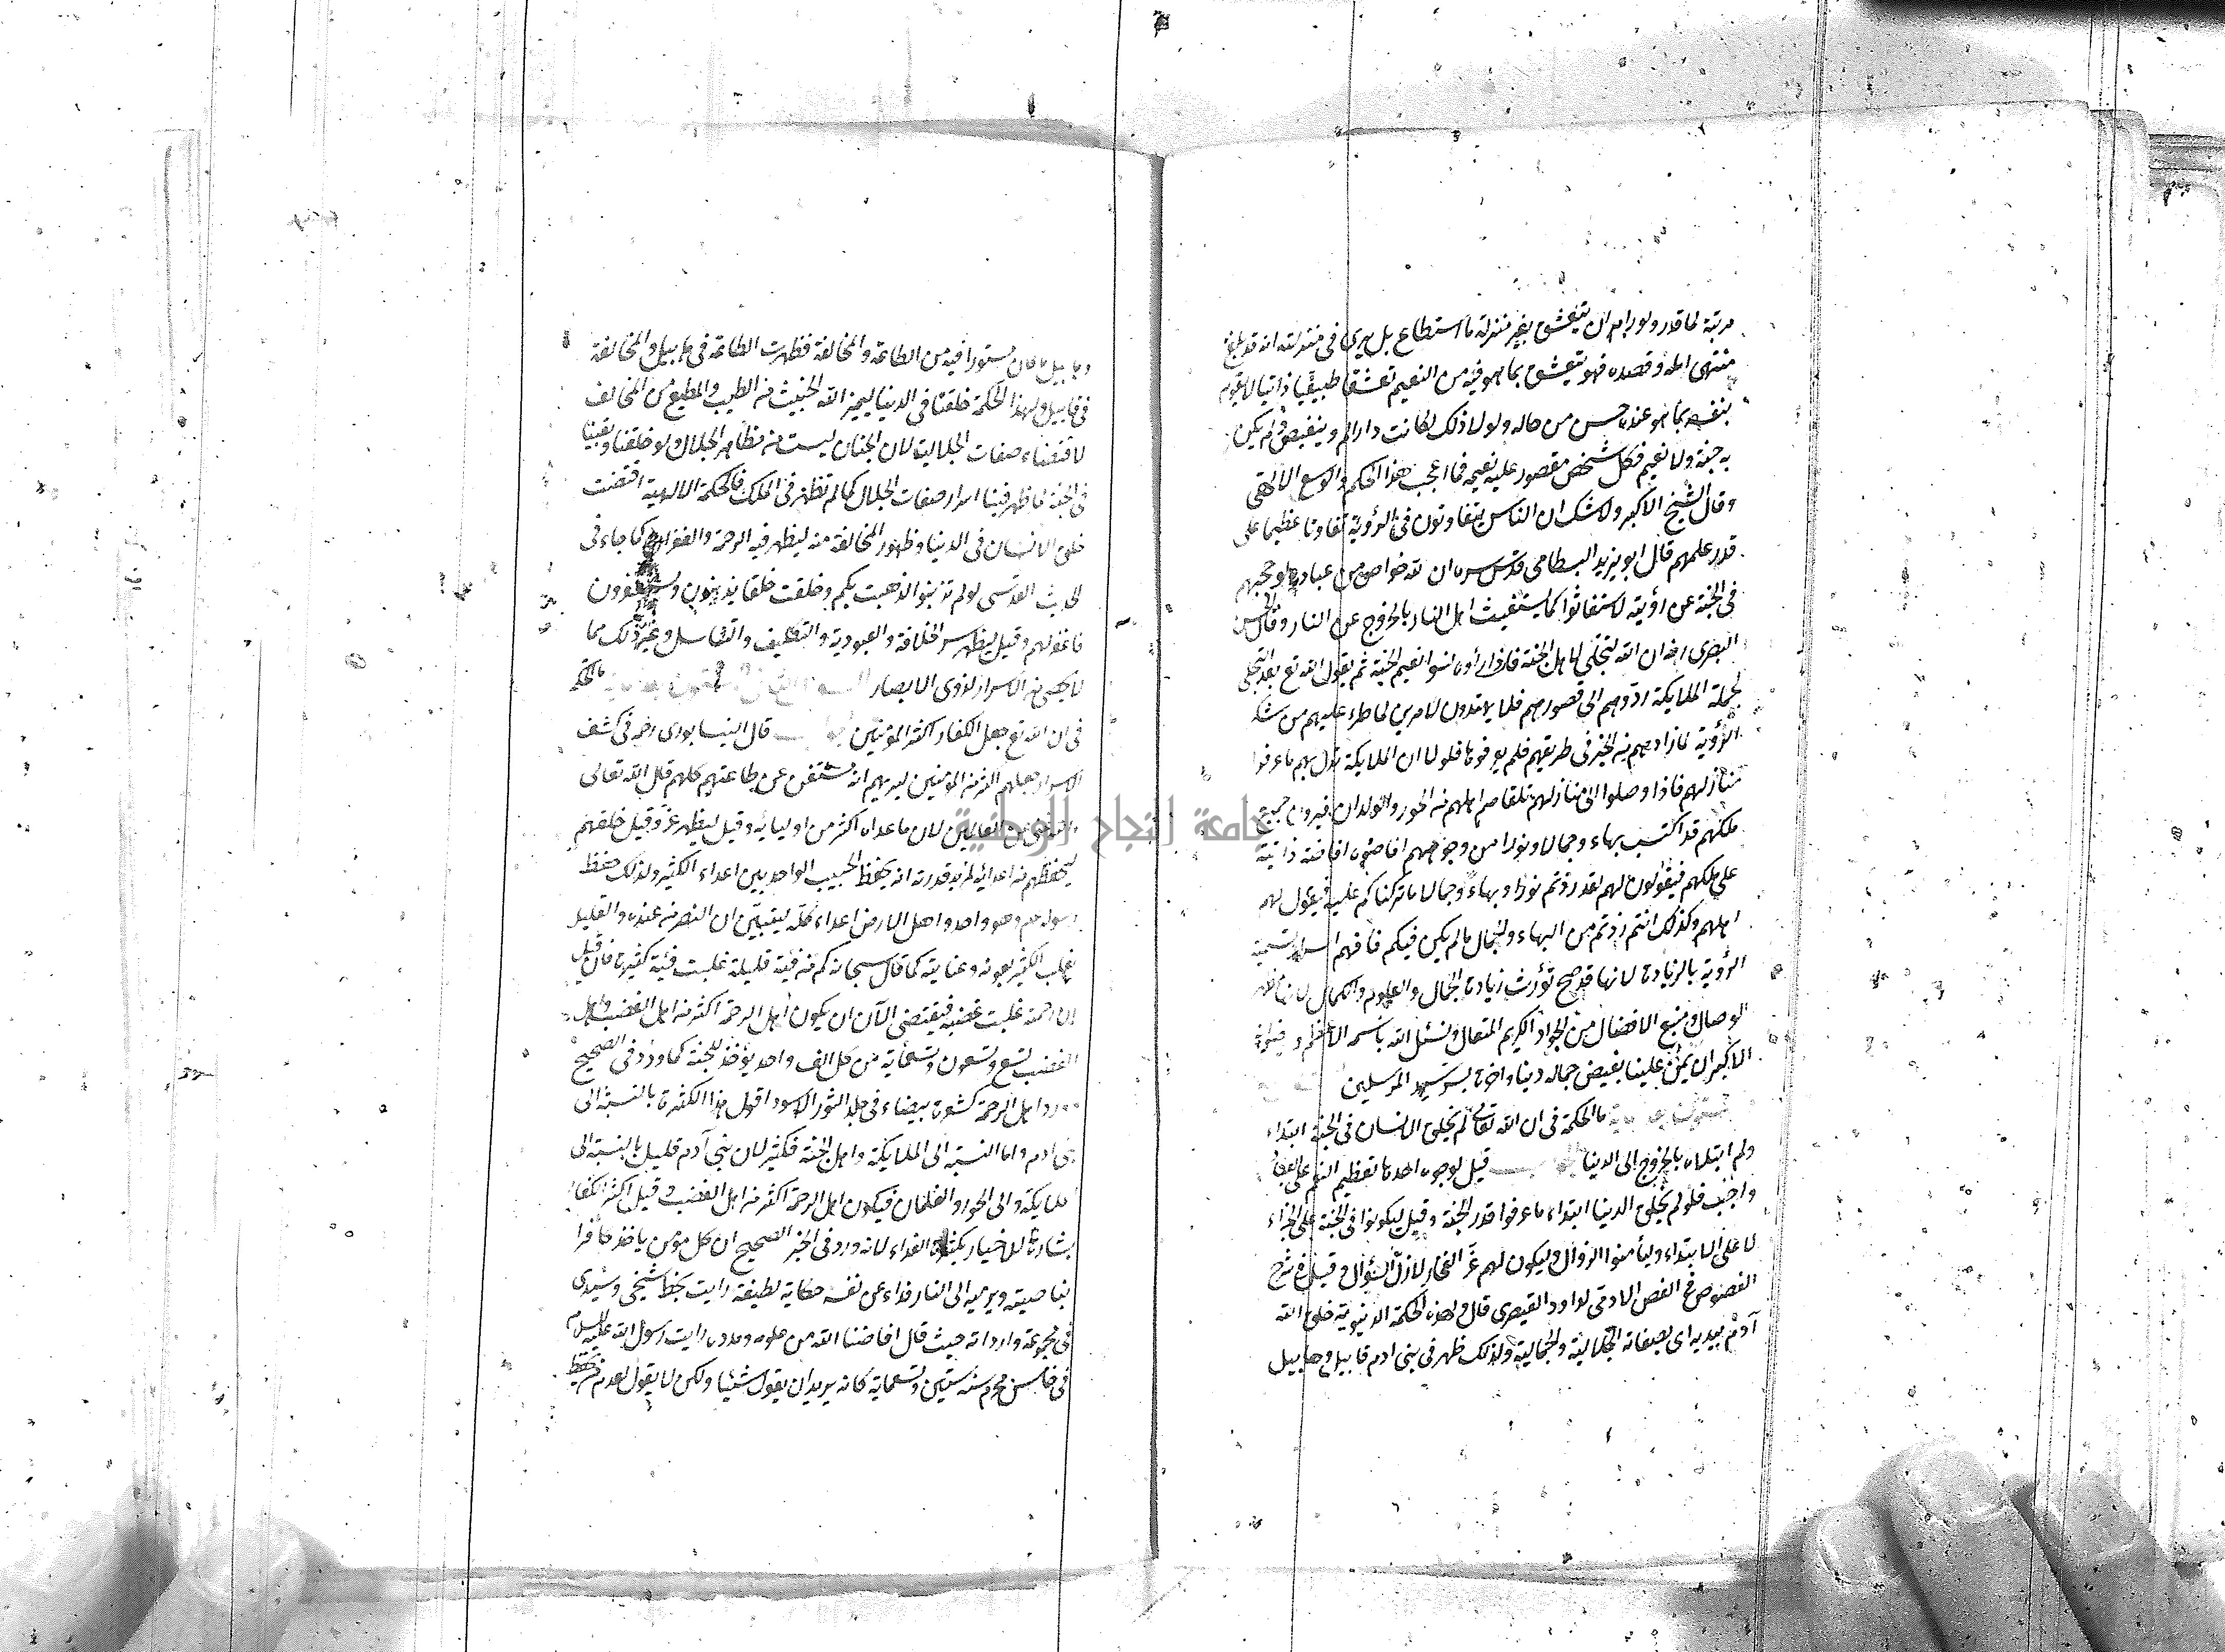 مرتبة لما قدر ولو رام ان يتعشق بغير منزلته ما استطاع بل يرى في منزلته انه قد بلغ
منتهى امله وقصده فهو يتعشق بما هو فيه من النعيم تعشقا طبيعيا ذاتيا لا يقوم
بنفسه بما هو عنده احسن من حاله ولولا ذلك لكانت دار الم وتنغيص ولم يكن
به جنة ولا نعيم فكل شخص مقصور عليه نعيمه فما اعجب هذا الحكم والوسع الالهي
وقال الشيخ الاكبر ولا شك ان الناس يتفاوتون في الرؤية تفاوتا عظيما على
قدر علمهم قال ابو يزيد البسطامي قدس سره ان لله خواص من عباده لو حجبهم
في الجنة عن رؤيته لاستغاثوا كما يستغيث اهل النار بالخروج عن النار وقال الحسن
البصري رضه ان الله ليتجلى لاهل الجنة فاذا رأوه نسوا نعيم الجنة ثم يقول الله تع بعد التجلي
لجملة الملايكة ردوهم الى قصورهم فلا يهتدون لامرين لما طرء عليهم من سكر
الرؤية لما زادهم من الخير في طريقهم فلم يعرفوها فلولا ان الملايكة تدل بهم ما عرفوا
منازلهم فاذا وصلوا الى منازلهم تلقاهم اهلهم من الحور والولدان فيرون جميع
ملكهم قد اكتسب بهاء وجمالا ونورا من وجوههم افاضوه افاضة ذاتية
على ملكهم فيقولون لهم لقد زدتم نورا وبهاء وجمالا ما تركناكم عليه فيقول لهم
اهلهم وكذلك انتم زدتم من البهاء والجمال ما لم يكن فيكم فافهم اسرار تسمية
الرؤية بالزيادة لانها قد صح تورث زيادة الجمال والعلوم والكمال
الوصال ومنبع الافضال من الجواد الكريم المتعال ونسئل الله باسمه الاعظم
الاكبر ان يمن علينا بفيض جماله دنيا واخرة بسر سيد المرسلين
ما الحكمة في ان الله تعالى لم يخلق الانسان في الجنة ابتداء
ولم ابتلاه بالخروج الى الدنيا قيل لوجوه احدها تعظيم النعم على
واجب فلو لم يخلق الدنيا ابتداء ما عرفوا قدر الجنة وقيل ليكونوا في الجنة على الجزاء
لا على الابتداء وليأمنوا الزوال وليكون لهم عز الفخار لا ذل السؤال وقيل في شرح
الفصوص في الفص الادمي لداود القيصري قال ولهذه الحكمة الدنيوية خلق الله
آدم بيديه اى بصفاته الجلالية والجمالية ولذلك ظهر في بني ادم قابيل وهابيل
وهابيل ما كان مستورا فيه من الطاعة والمخالفة فظهرت الطاعة في هابيل والمخالفة
في قابيل ولهذا الحكمة خلقنا في الدنيا ليميز الله الخبيث من الطيب والمطيع من المخالف
لاقتضاء صفات الجلالية لان الجنان ليست من مظاهر الجلال ولو خلقنا وبقينا
في الجنة لما ظهر فينا اسرار صفات الجلال كما لم تظهر في الملك فالحكمة الالهية اقتضت
خلق الانسان في الدنيا وظهور المخالفة منه ليظهر فيه الرحمة والغفران كما جاء في
الحديث القدسي لو لم تذنبوا لذهبت بكم وخلقت خلقا يذنبون ويستغفرون
فاغفر لهم وقيل ليظهر سر الخلافة والعبودية والتكليف والتناسل وغير ذلك مما
لا يخفى من الاسرار لذوى الابصار ما الحكمة
في ان الله تع جعل الكفار اكثر المؤمنين قال النيسابوري رحمه في كشف
الاسرار جعلهم اكثر من المؤمنين ليريهم انه مستغن عن طاعتهم كلهم قال الله تعالى
والله غني عن العالمين لان ما عداه اكثر من اوليائه وقيل ليظهر عز وقيل خلقهم
ليحفظهم من اعدائه لمزيد قدرته انه يحفظ الحبيب الواحد بين اعداء الكثير ولذلك حفظ
رسوله صم وهو واحد واهل الارض اعداء كله ليتبين ان النصر من عنده والقليل
يغلب الكثير بعونه وعنايته كما قال سبحانه كم من فئة قليلة غلبت فئة كثيرة فان قيل
ان رحمته غلبت غضبه فيقتضي الآن ان يكون اهل الرحمة اكثر من اهل الغضب واهل
الغضب تسع وتسعون وتسعماية من كل الف واحد يؤخذ للجنة كما ورد في الصحيح
ورد اهل الرحمة كشعرة بيضاء في جلد الثور الاسود اقول هذا الكثرة بالنسبة الى
بني ادم واما النسبة الى الملايكة واهل الجنة فكثير لان بني آدم قليل بالنسبة الى
الملايكة والى الحور والغلمان فيكون اهل الرحمة اكثر من اهل الغضب وقيل اكثر الكفار
بشارة للاخيار بكثرة الفداء لانه ورد في الخبر الصحيح ان كل مؤمن ياخذ كافرا
بناصيته ويرميه الى النار فداء عن نفسه حكاية لطيفة رايت بخط شيخي وسيدى
في مجموعة وارداته حيث قال افاضنا الله من علومه ومدده رايت رسول الله عليه السلام
في خامس محرم سنة ستين وتسعماية كانه يريد ان يقول شيئا ولكن لا يقول لعدم
جامعة النجاح الوطنية